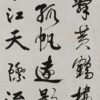 黃鶴樓
孤帆遠影
江天際流